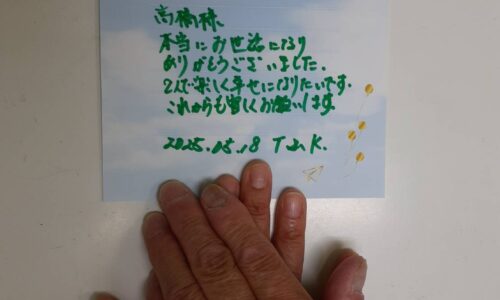 高橋様
本当にお世話になり
ありがとうございました。
2人で楽しく幸せになりたいです。
これからも宜しくお願いします。
2025.05.18 T & K.